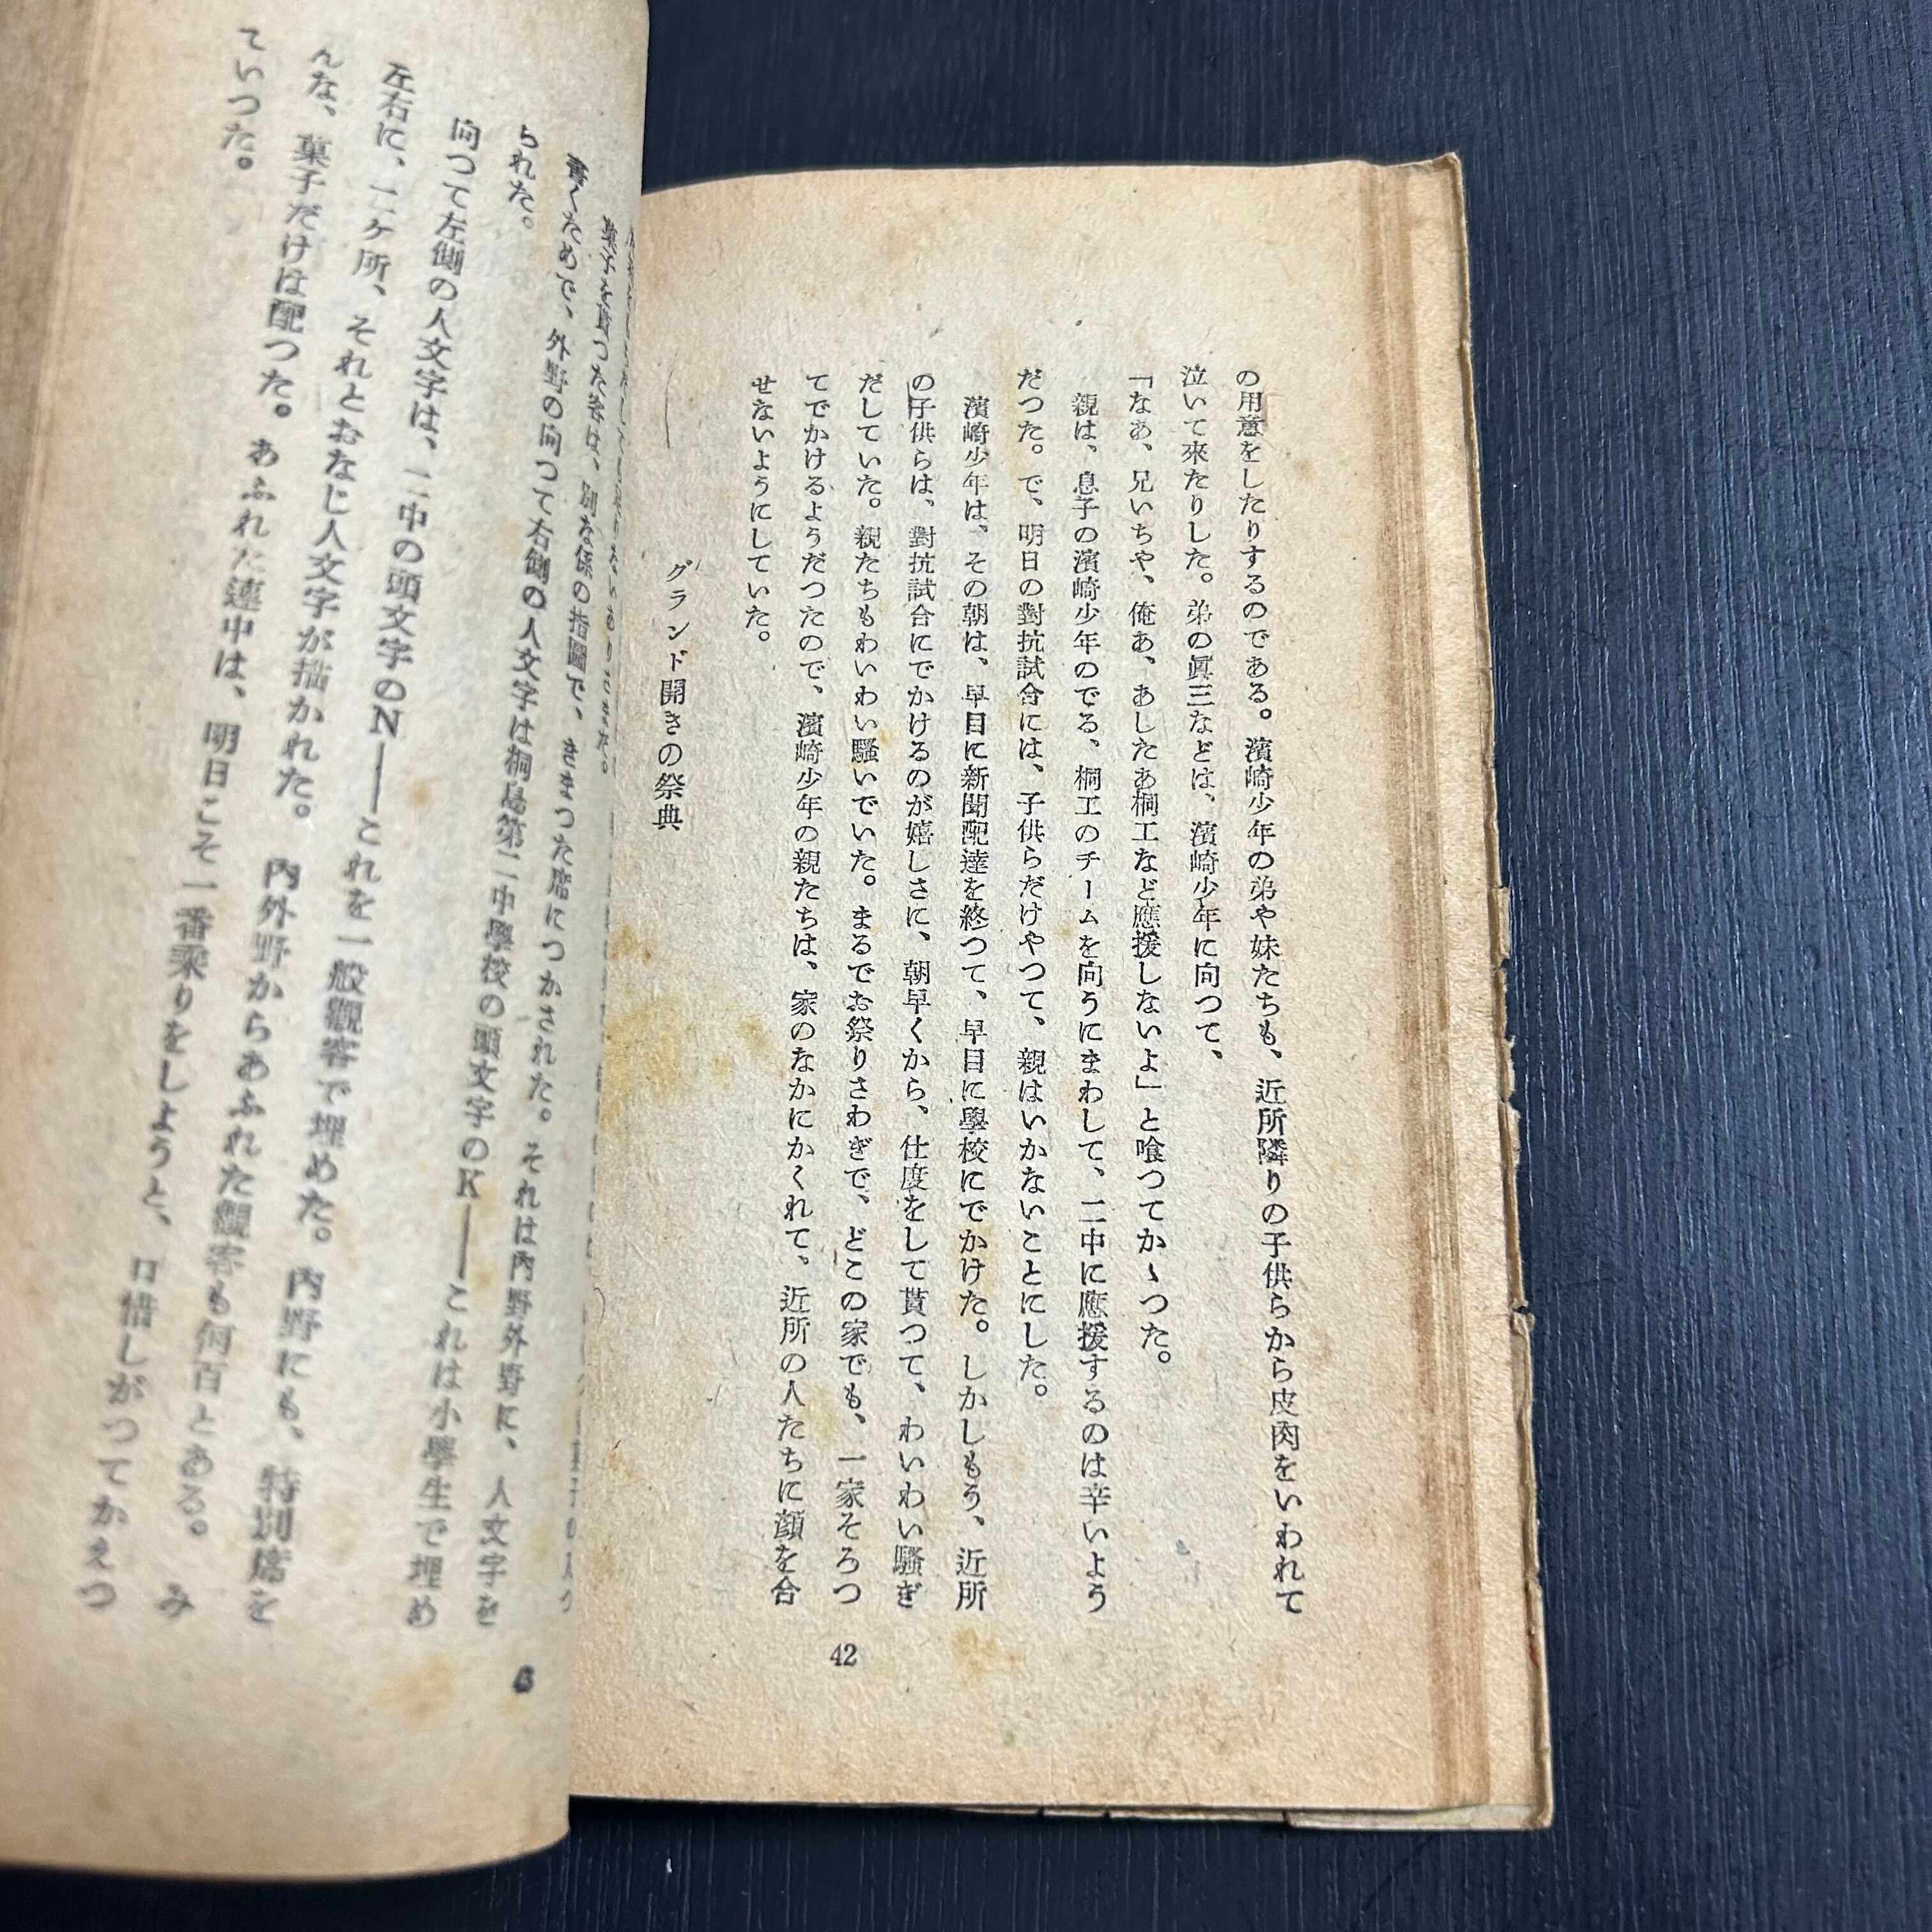 の用意をしたりするのである。濱崎少年の弟や妹たちも、近所隣りの子供らから皮肉をいわれて
泣いて來たりした。弟の眞三などは、濱崎少年に向つて、
「なあ、兄いちや、俺あ、あしたあ桐工など應援しないよ」と喰つてかゝつた。
親は、息子の濱崎少年のでる、桐工のチームを向うにまわして、二中に應援するのは辛いよう
だつた。で、明日の對抗試合には、子供らだけやつて、親はいかないことにした。
濱崎少年は、その朝は、早目に新聞配達を終つて、早目に學校にでかけた。しかしもう、近所
の子供らは、對抗試合にでかけるのが嬉しさに、朝早くから、仕度をして貰つて、わいわい騷ぎ
だしていた。親たちもわいわい騷いでいた。まるでお祭りさわぎで、どこの家でも、一家そろつ
てでかけるようだつたので、濱崎少年の親たちは、家のなかにかくれて、近所の人たちに顏を合
せないようにしていた。
グランド開きの祭典
42
菓子を貰つた者は、別な係の指圖で、きまつた席につかされた。それは内野外野に、人文字を
書くためで、外野の向つて右側の人文字は桐島第二中學校の頭文字のK――これは小學生で埋め
られた。
向つて左側の人文字は、二中の頭文字のN――これを一般觀客で埋めた。内野にも、特別席を
左右に、二ケ所、それとおなじ人文字が描かれた。内外野からあふれた觀客も何百とある。み
んな、菓子だけは配つた。あふれた連中は、明日こそ一番乘りをしようと、口惜しがつてかえつ
ていつた。